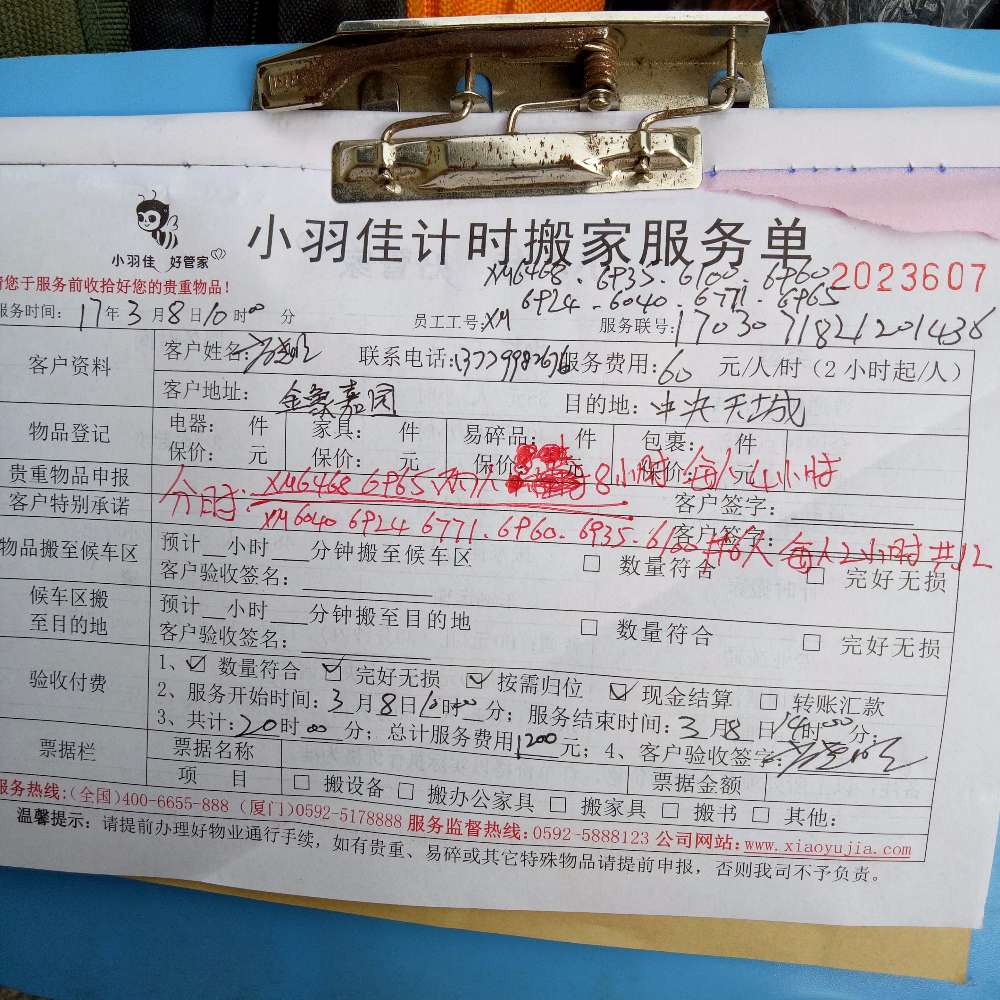 小羽佳计时搬家服务单
小羽佳 好管家
XM6468.6935.6100.6960
2023607
请您于服务前收拾好您的贵重物品!
6924.6040.6771.6965
服务时间: 17年3月8日10时00分 员工工号:XM 服务联号:1703071821201436
客户资料
客户姓名: 联系电话: 服务费用:60元/人/时(2小时起/人)
客户地址: 金象嘉园 目的地:中央天城
物品登记
电器: 件 家具: 件 易碎品: 件 包裹: 件
保价: 元 保价: 元 保价: 元 保价: 元
贵重物品申报 客户签字:
分时: XM6468 6965 两人 8小时 每人4小时
客户特别承诺 客户签字:
XM6040 6924 6771.6960.6935.6100 共6人 每人2小时 共12
物品搬至候车区
预计__小时___分钟搬至候车区 □ 数量符合 □ 完好无损
客户验收签名:
候车区搬至目的地
预计__小时___分钟搬至目的地 □ 数量符合 □ 完好无损
客户验收签名:
验收付费
1、☑ 数量符合 ☑ 完好无损 ☑ 按需归位 ☑ 现金结算 □ 转账汇款
2、服务开始时间:3月8日10时00分; 服务结束时间:3月8日14时00分;
3、共计:20时00分; 总计服务费用1200元; 4、客户验收签字:
票据栏
票据名称 票据金额
项 目 □ 搬设备 □ 搬办公家具 □ 搬家具 □ 搬书 □ 其他:
服务热线:(全国)400-6655-888 (厦门)0592-5178888 服务监督热线:0592-5888123 公司网站:www.xiaoyujia.com
温馨提示: 请提前办理好物业通行手续, 如有贵重、易碎或其它特殊物品请提前申报, 否则我司不予负责。